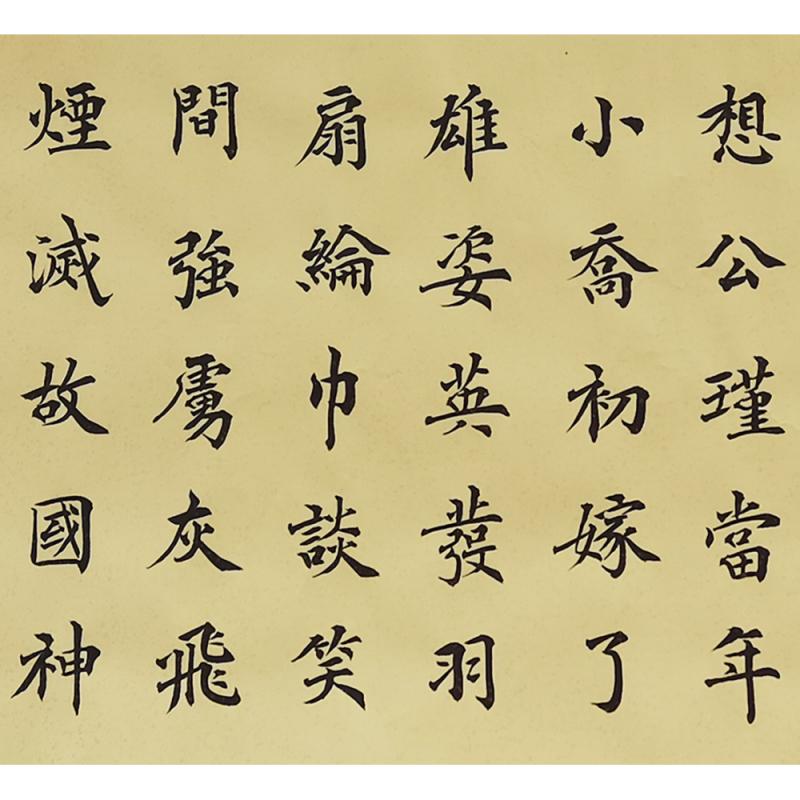 想公瑾當年
小喬初嫁了
雄姿英發羽
扇綸巾談笑
間強虜灰飛
煙滅故國神